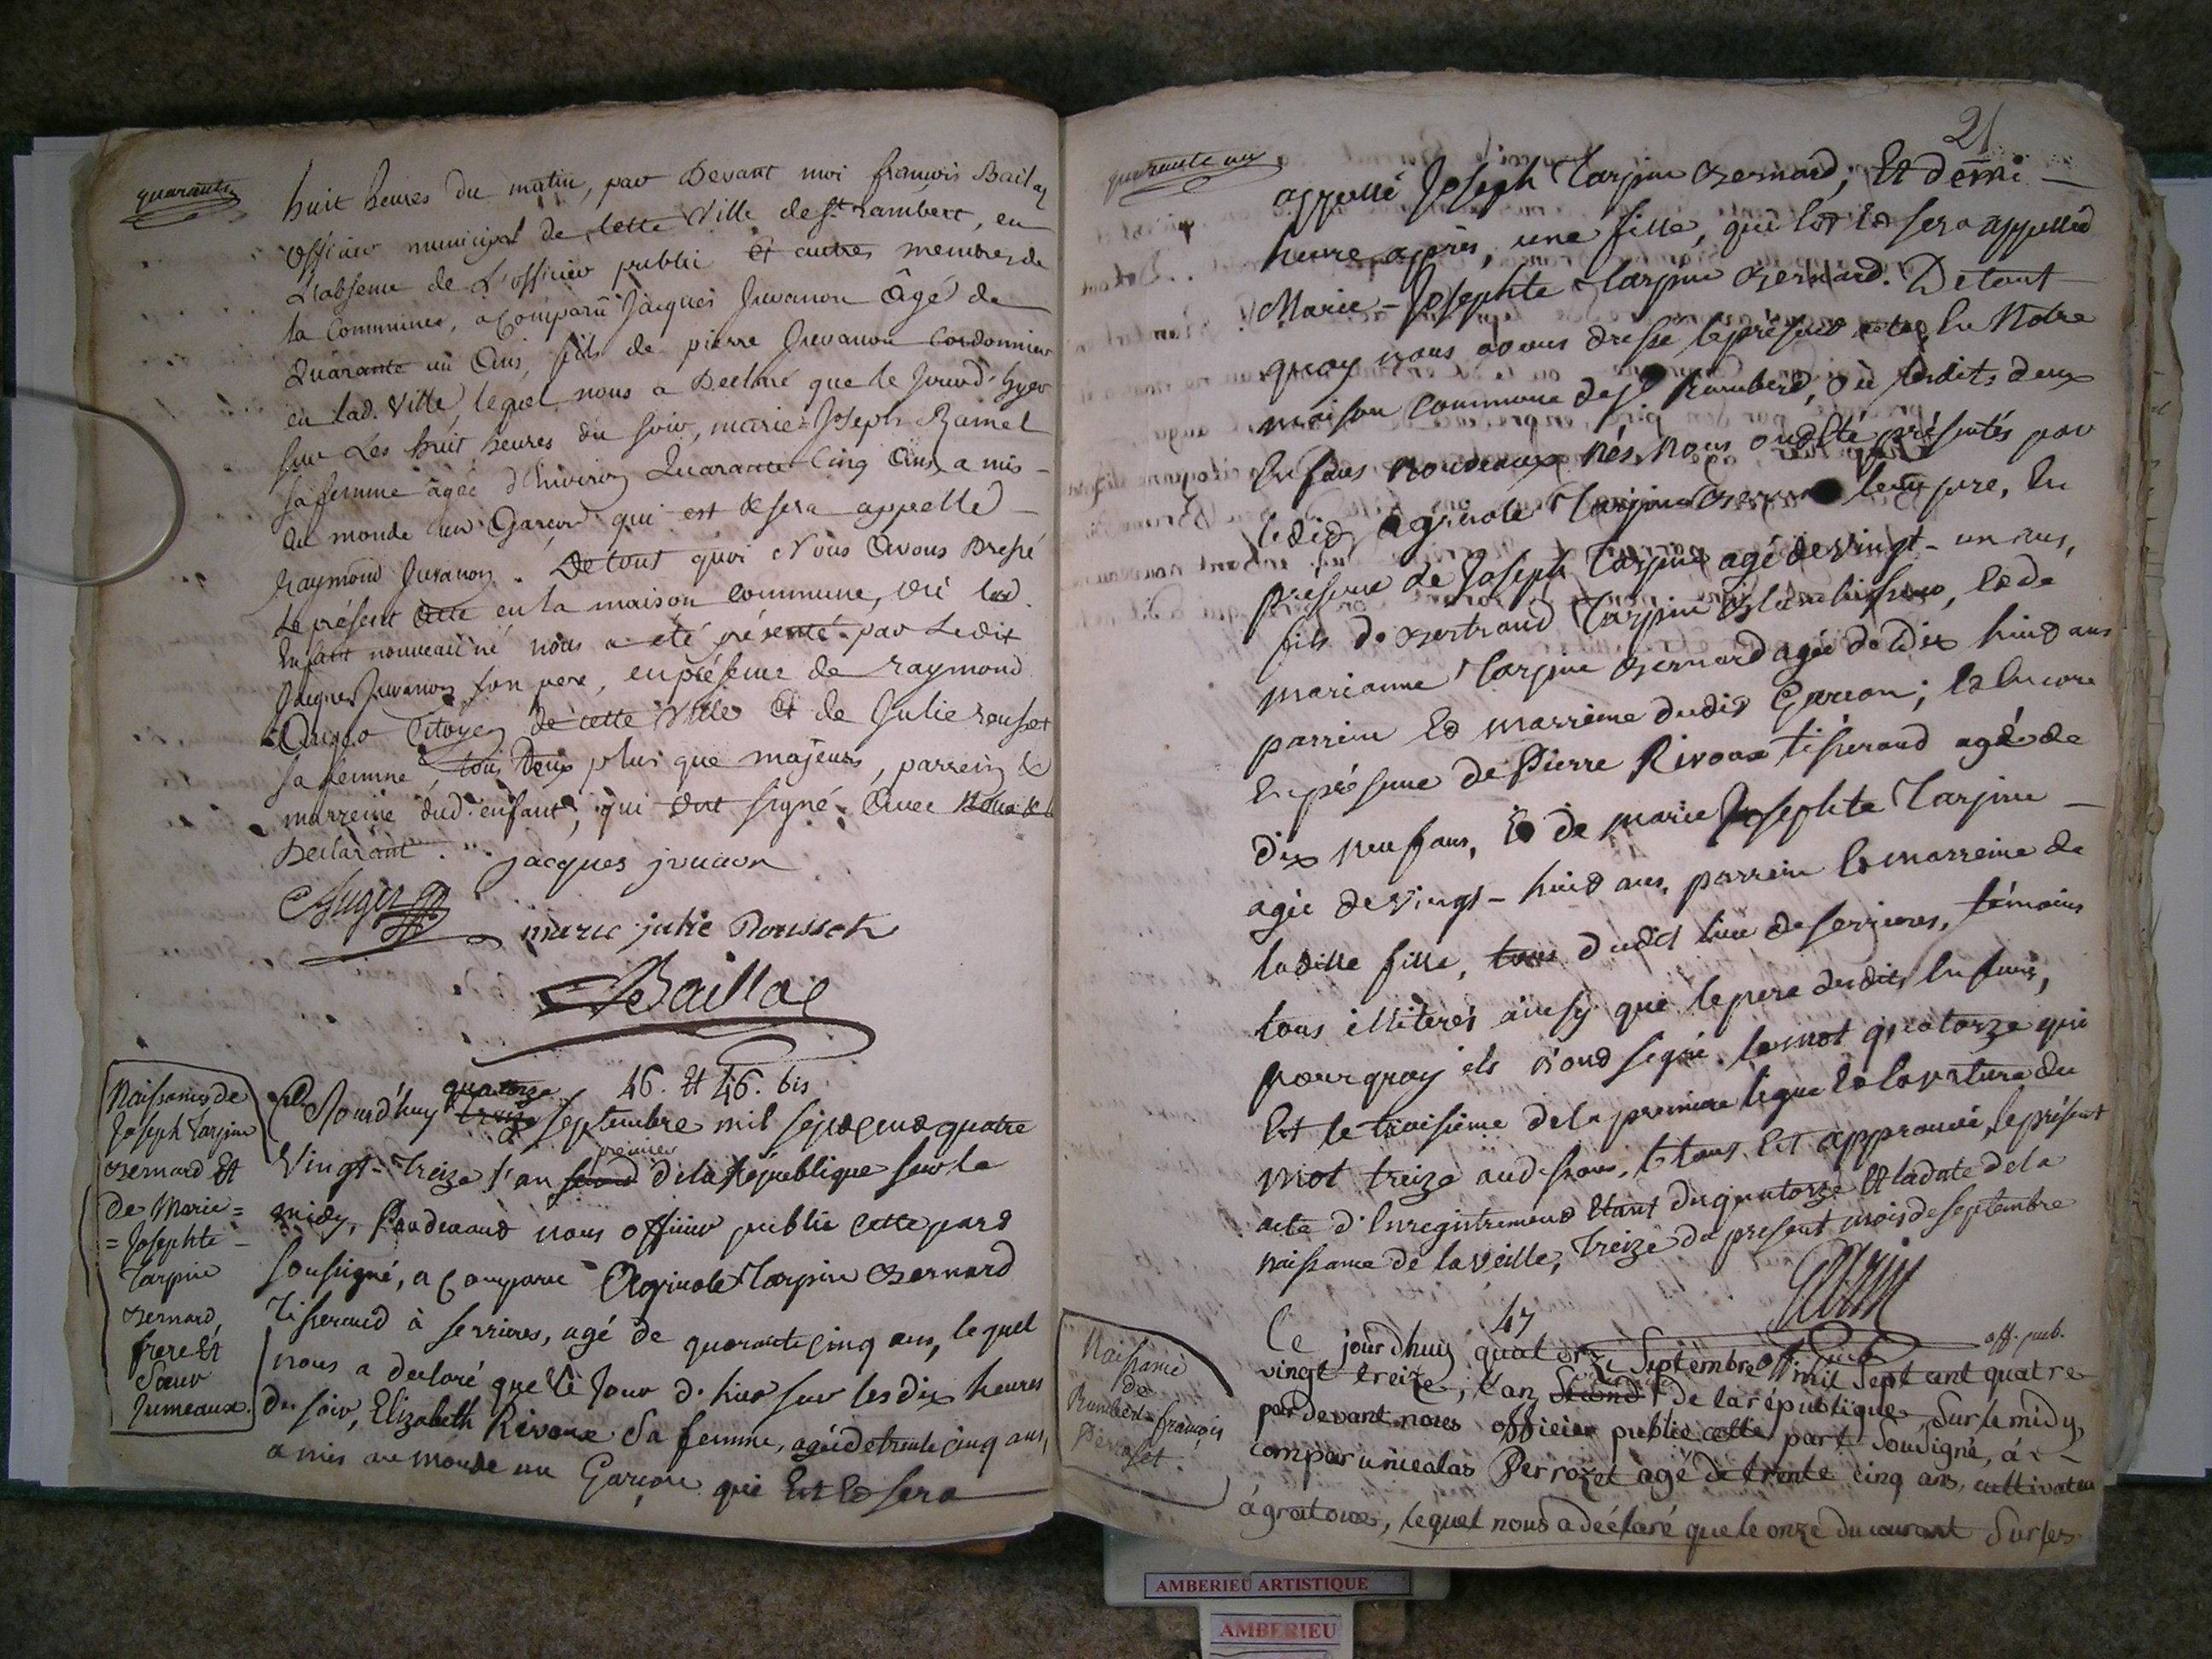 quarante
huit heures du matin, par Devant moi françois Baillaz
officier municipal de cette Ville de St. rambert, en
L'absence de L'officier public et autres membres de
la Commune, a Comparû Jacques Juvanon Âgé de
Quarante un Ans, fils de pierre Juvanon Cordonnier
en lad. Ville, lequel nous a Declaré que le Jour d'hyer
sur Les huit heures du soir, marie-Joseph Ramel
sa femme âgée d'Environ Quarante Cinq Ans, a mis
au monde un Garçon qui est & sera appellé
Raymond Juvanon. De tout quoi Nous Avons Dressé
Le présent Acte en la maison commune, où led.
Enfant nouveau né nous a été présenté par Ledit
Jacques Juvanon son pere, en présence de raymond
Auger Citoyen de cette Ville et de Julie rousset
sa femme, tous Deux plus que majeurs, parrein &
marreine dud. enfant, qui ont signé Avec Nous & le
Declarant.
jacques juvanon
Auger
marie julie Rousset
Baillaz
46. Et 46. bis
Naissances de
Joseph Tarpin
Bernard Et
de Marie=
=Josephte
Tarpin
Bernard,
frere Et
Sœur
Jumeaux.
quatorze
Ce Jourd'huy treize septembre mil sept cent quatre
premier
Vingt-treize l'an second de la République sur le
midy, Pardevant nous officier public cette part
soussigné, a Comparu Agricole Tarpin Bernard
Tisserand à serrieres, agé de quarante cinq ans, lequel
nous a declaré que le Jour d'hier sur les dix heures
du soir, Elizabeth Rivoux sa femme, agée de trente cinq ans,
a mis au monde un Garçon qui Est Et sera
21
quarante un
appellé Joseph Tarpin Bernard; Et demi
heure après, une fille, qui Est Et sera appellée
Marie-Josephte Tarpin Bernard. De tout
quoy nous avons dressé le présent acte, En Notre
maison Commune de St. Rambert, où lesdits deux
Enfans nouveaux nés nous ont été présentés par
ledit Agricole Tarpin Bernard leur pere, En
présence de Joseph Tarpin agé de vingt-un ans,
fils de Bertrand Tarpin Blanchisseur, Et de
marianne Tarpin Bernard agée de dix huit ans
parrein Et marreine dudit Garcon; Et Encore
En présence de Pierre Rivoux tisserand agé de
dix neuf ans, Et de marie Josephte Tarpin
agée de vingt-huit ans, parrein Et marreine de
laditte fille, tous dudit lieu de serrieres, témoins
tous illiterés ainsy que le pere desdits Enfans,
pourquoy ils n'ont signé. le mot quatorze qui
Est le troisième de la premiere ligne Et la rature du
mot treize au dessous, le tous Est approuvé, le présent
acte d'Enregistrement étant du quatorze Et la date de la
naissance de la veille, treize du present mois de septembre
off. pub.
47
Naissance
de
Rambert-françois
Perrozet.
Ce jourdhuy quatorze Septembre mil Sept cent quatre
vingt treize, l'an Second de la république, Sur le midy,
par devant nous officier public cette part Soussigné, à
comparu nicolas Perrozet agé de trente cinq ans, cultivateur
á gratoux, lequel nous a déclaré que le onze du courant Sur les
AMBERIEU ARTISTIQUE
AMBERIEU